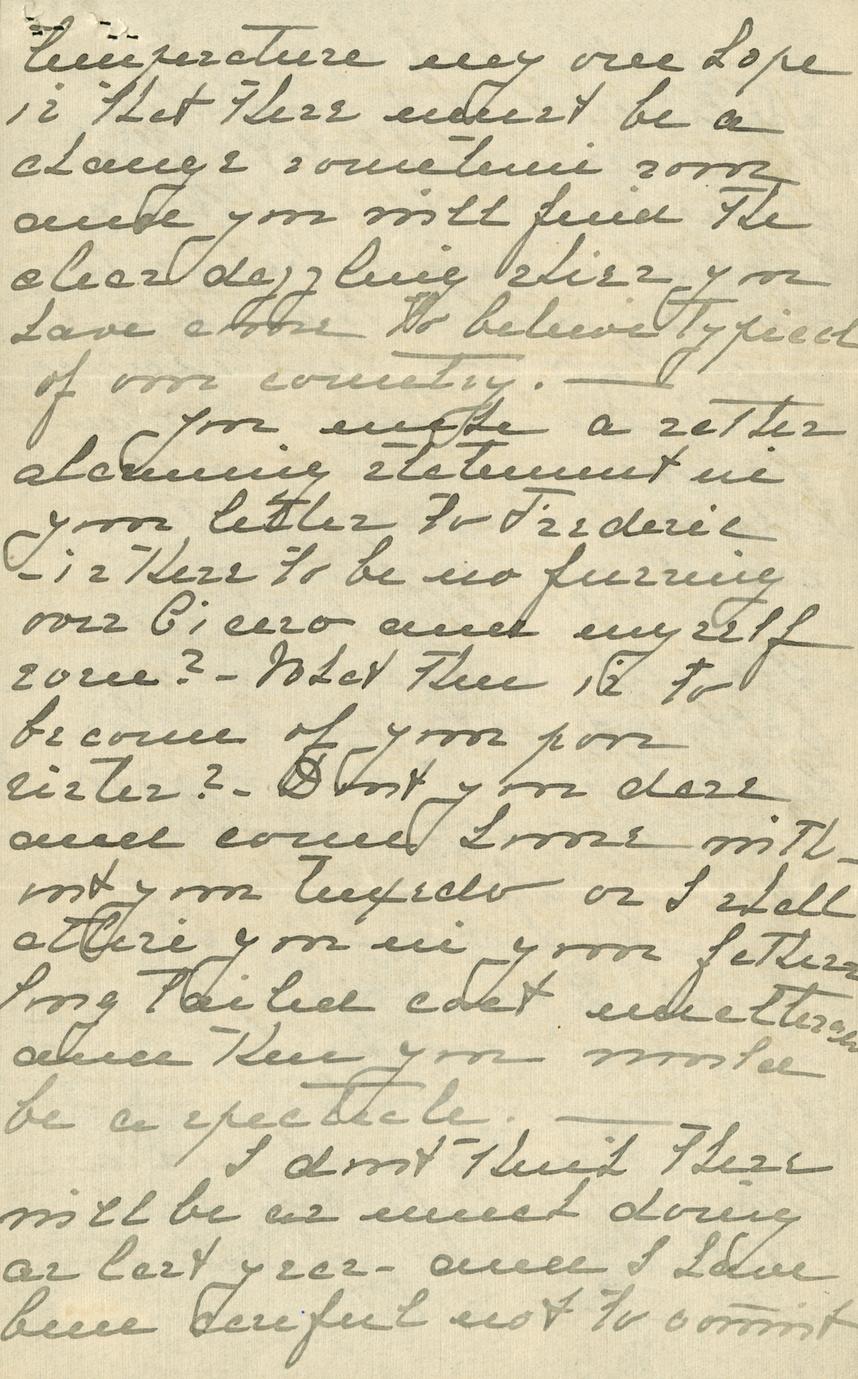 temperature my one hope
is that there must be a
change sometime soon
and you will find the
clear dazzling skies you
have come to believe typical
of our country. —
you make a rather
alarming statement in
your letter to Frederic
- is there to be no fussing
over Cicero and myself
some? - What then is to
become of your poor
sister? - Don't you dare
and come home with-
out your tuxedo or I shall
attire you in your fathers
long tailed coat
and then you would
be a spectacle. —
I don't think there
will be as much doing
as last year - and I have
been careful not to commit